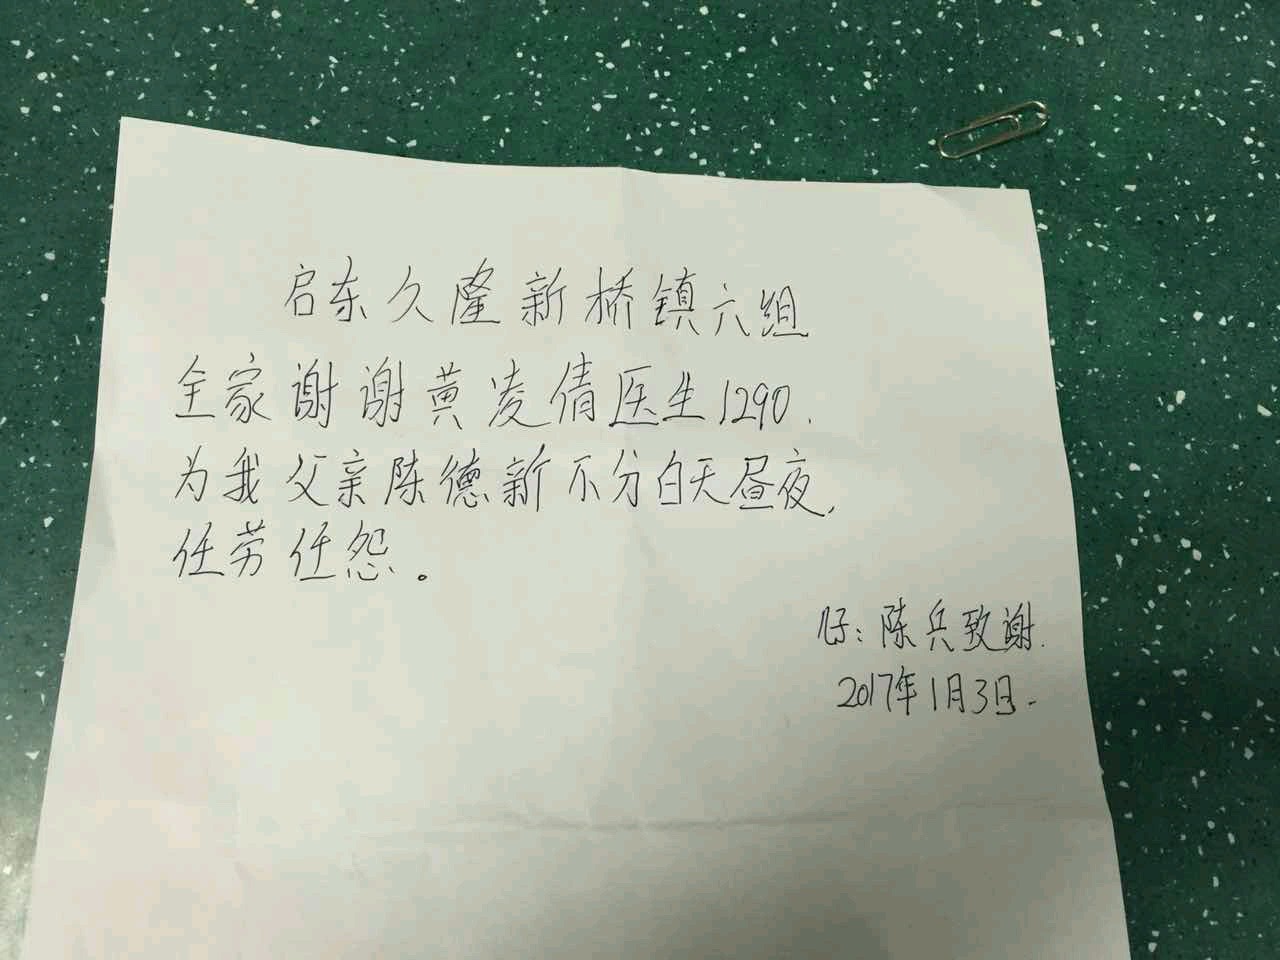 启东久隆新桥镇六组
全家谢谢黄凌倩医生1290.
为我父亲陈德新不分白天昼夜,
任劳任怨。
儿子：陈兵致谢.
2017年1月3日.